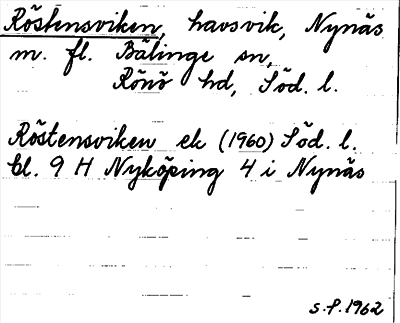 Röstensviken, havsvik, Nynäs
m. fl. Bälinge sn,
Rönö hd, Söd. l.
Röstensviken ek (1960) Söd. l.
bl. 9 H Nyköping 4 i Nynäs
s.f. 1962